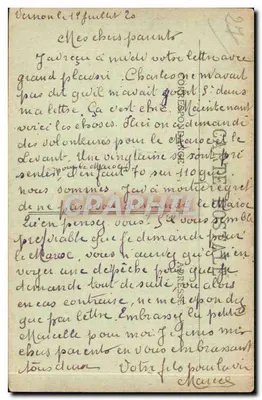 Vernon le 19 Juillet 20
Mes chers parents
J'ai reçu à midi votre lettre avec
grand plaisir. Charles ne m'avait
pas dit qu'il m'avait dans
ma lettre. Ça c'est chic. Maintenant
voici les choses. Ici on a demandé
des volontaires pour le Maroc et le
Levant. Une vingtaine se sont pré
senter. Il en faut 70 sur 110 que
pour le Maroc
nous sommes. J'ai à moitié regret
de ne pas le Maroc
Qu'en pensez vous. S'il vous semble
préférable que je demande pour
le Maroc, vous n'aurez qu'à m'en
voyer une dépêche pour que je
demande tout de suite, ou alors
en cas contraire, ne me répondez
que par lettre. Embrassez la petite
Marcelle pour moi. Je finis mes
chers parents en vous embrassant
tous deux Votre fils pour la vie
Marcel
CARTE POSTALE
CORRESPONDANCE
ADRESSE
CPAPHIL